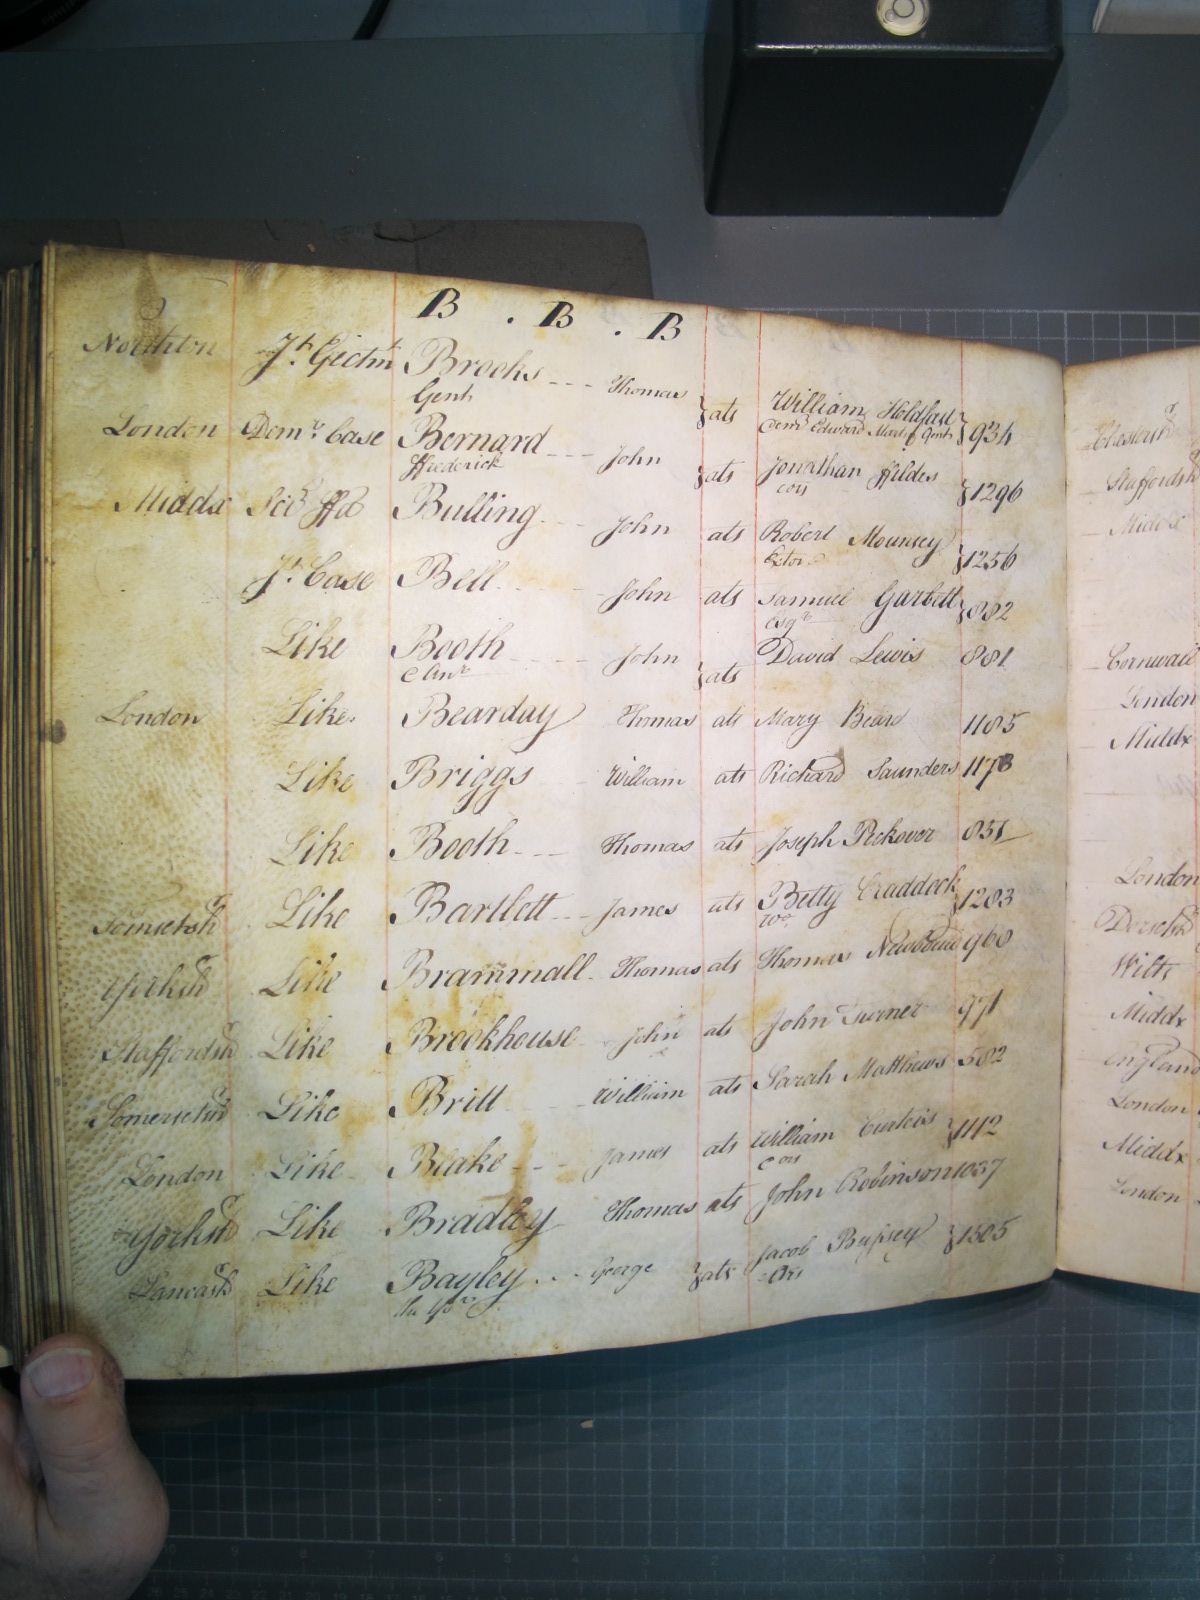 B . B . B
Northton Jt. Ejectmt Brooks --- Thomas } ats William Holdfast } 934
Gent Demi Edward Gent
London Demr. Case Bernard --- John } ats Jonathan ffildes } 1296
ffrederick
Middx Sci ffa Bulling --- John ats Robert Mounsey } 1256
Jt. Case Bell --- John ats Samuel Garbett } 882
Esqr
Like Booth --- John } ats David Lewis 881
London Like Bearday Thomas ats Mary 1185
Like Briggs William ats Richard Saunders 1178
Like Booth --- Thomas ats Joseph Peckover 851
Somersetsh Like Bartlett --- James ats Betty Craddock } 1203
Yorksh Like Brammall Thomas ats Thomas 960
Staffordsh Like Brookhouse John ats John Turner 971
Somersetsh Like Britt William ats Sarah Matthews 582
London Like Blake --- James ats William Curteis } 1112
Yorksh Like Bradley Thomas ats John Robinson 1037
Lancash Like Bayley --- George } ats Jacob } 1505
Staffordsh
Middx
Cornwall
London
Middx
London
Dorsetsh
Wilts
Middx
England
London
Middx
London